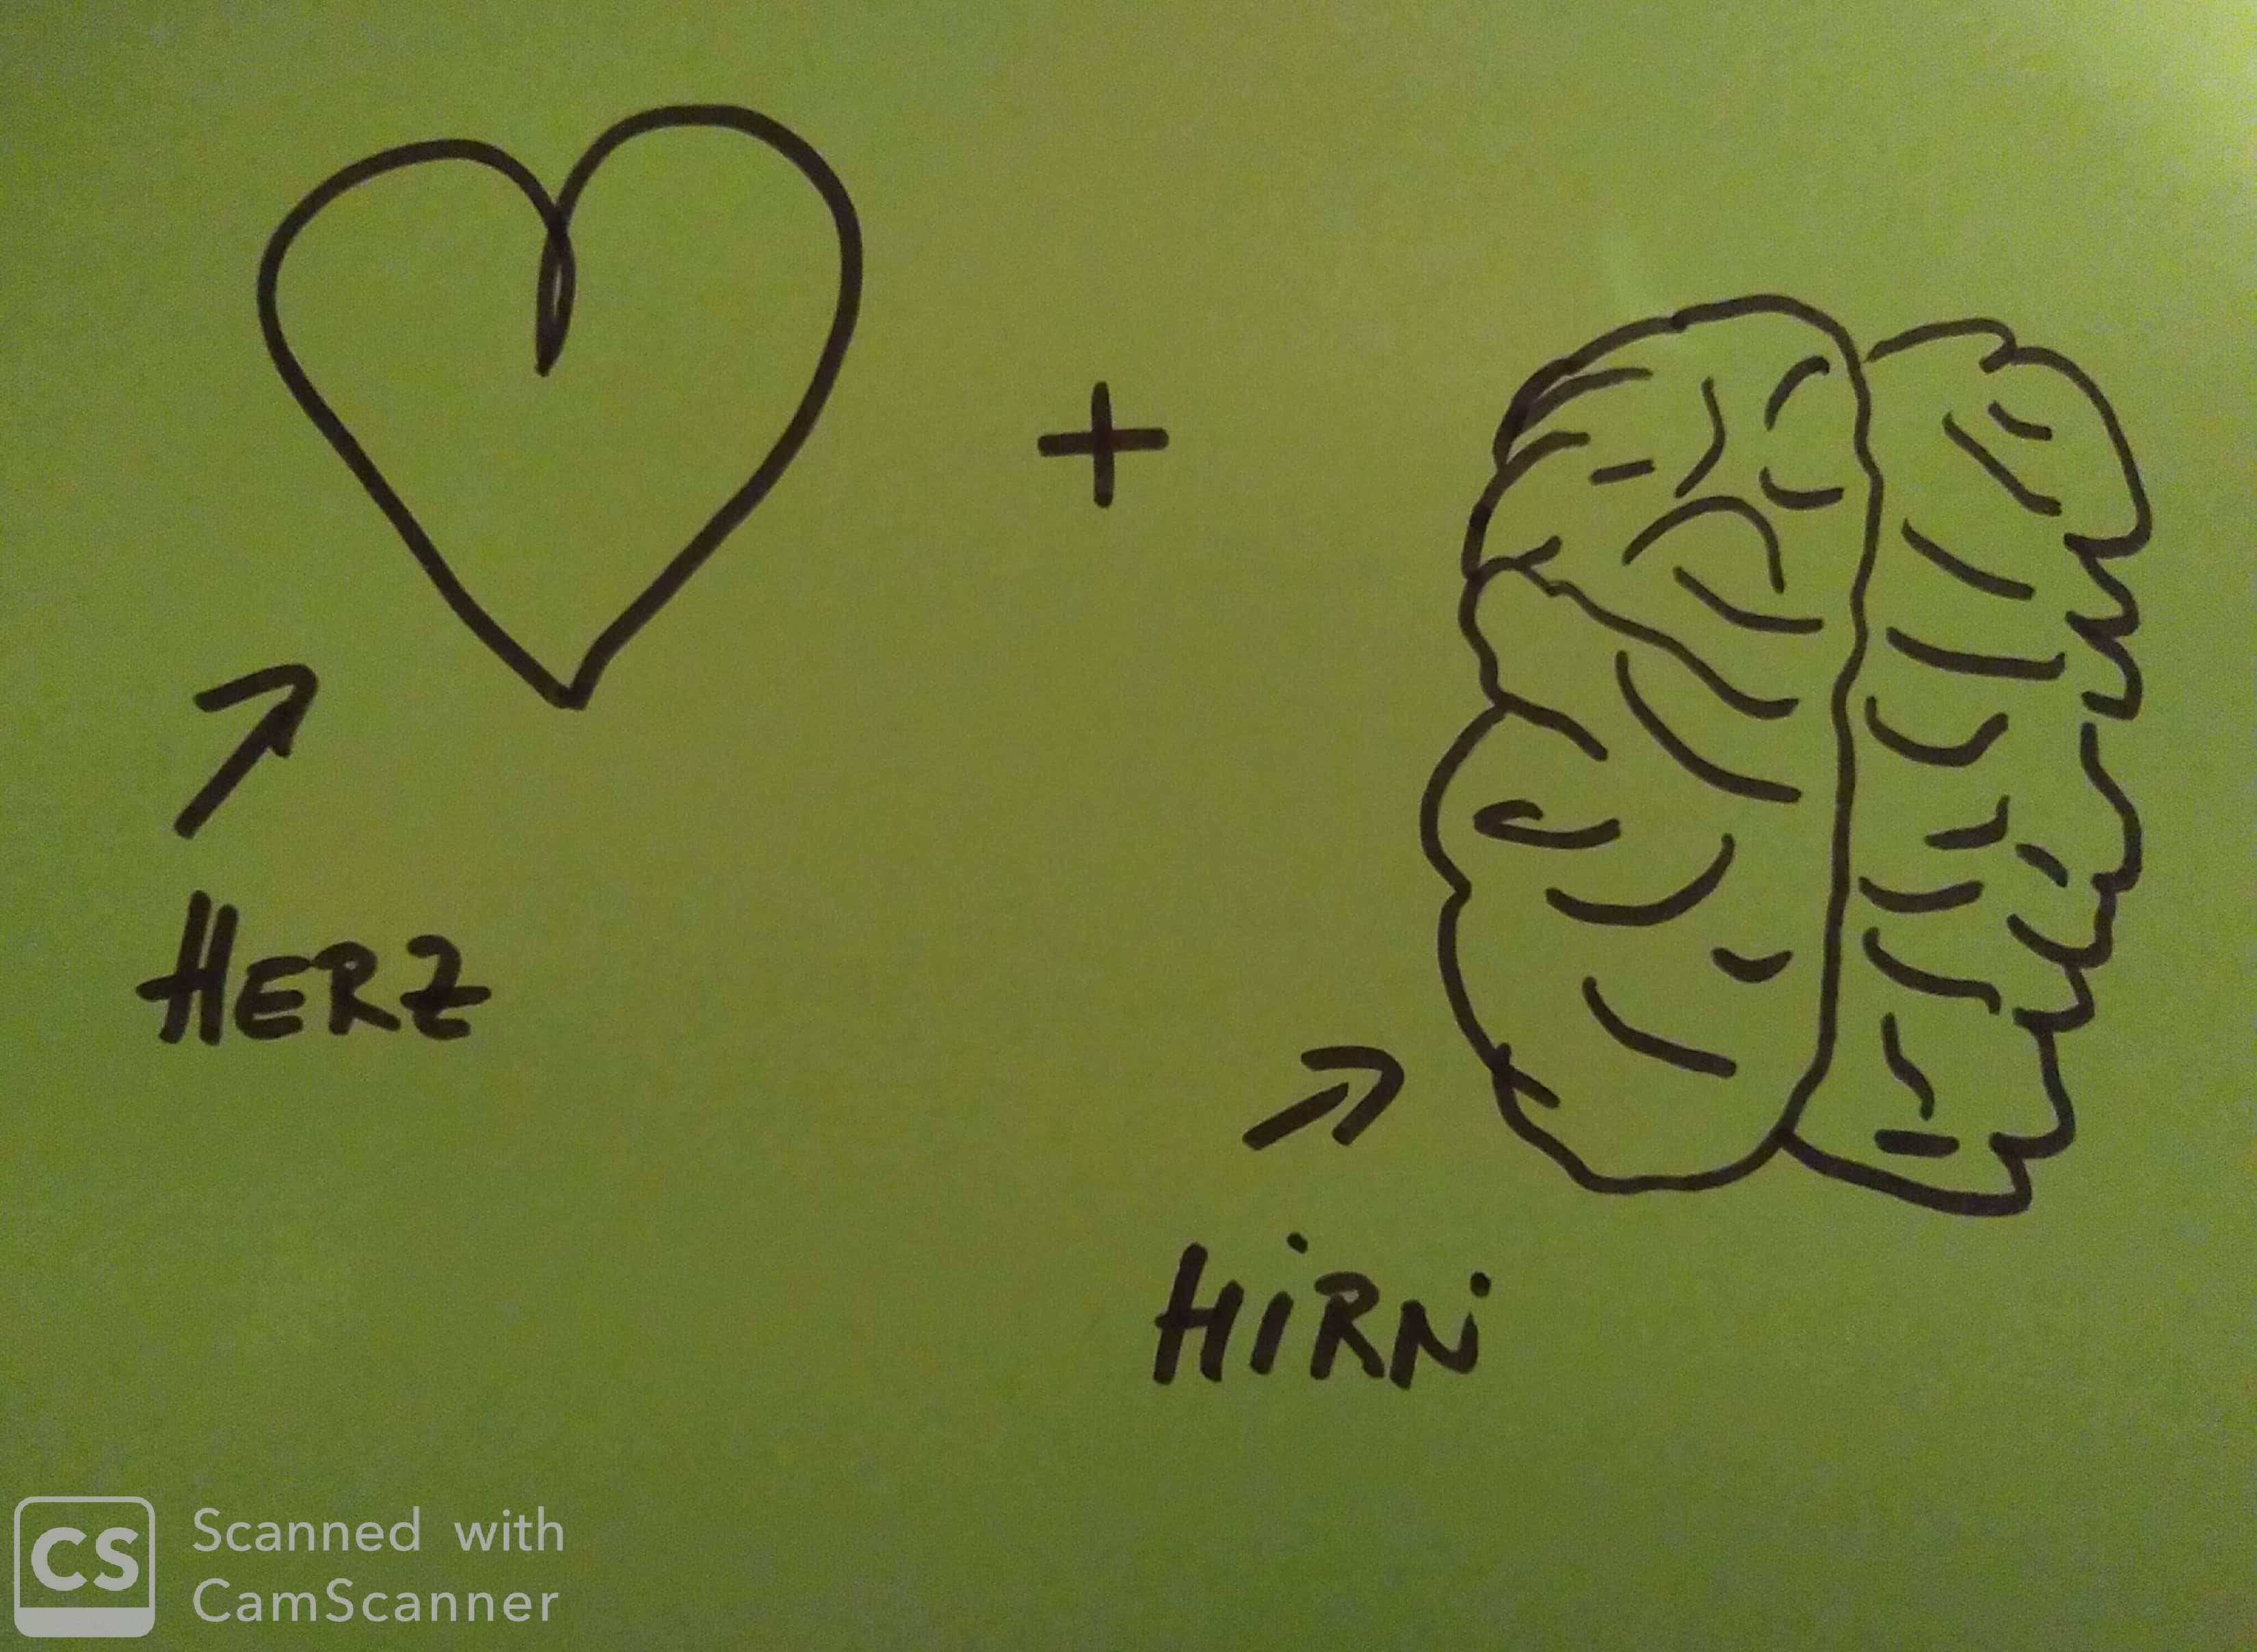 +
HERZ
HiRN
CS Scanned with
CamScanner